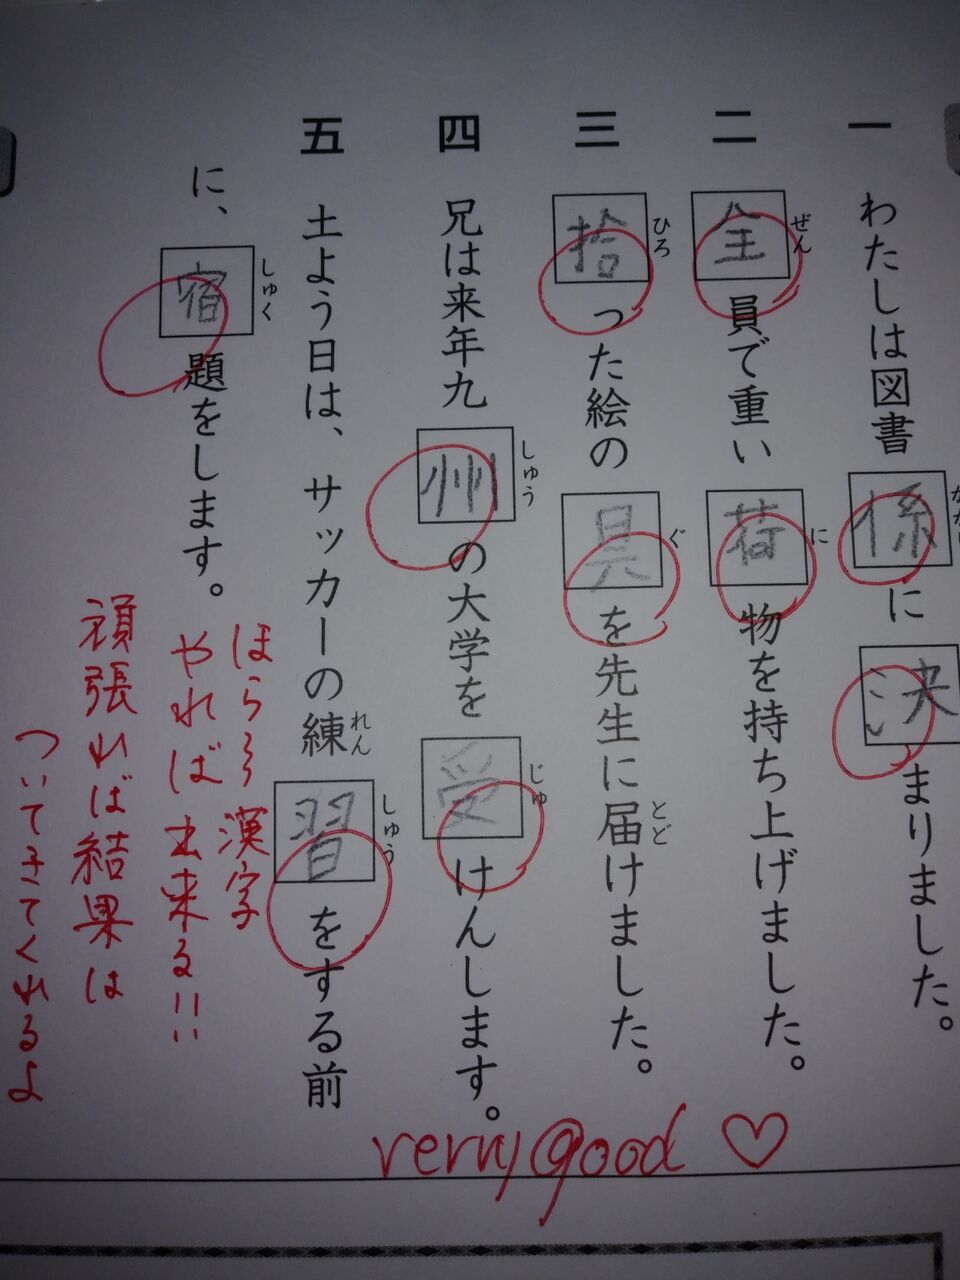 一 わたしは図書係に決まりました。
ぜん に
二 全員で重い荷物を持ち上げました。
ひろ ぐ とど
三 拾った絵の具を先生に届けました。
しゅう じゅ
四 兄は来年九州の大学を受けんします。
れん しゅう
五 土よう日は、サッカーの練習をする前
しゅく
に、宿題をします。
ほらろ 漢字
やれば出来る!!
頑張れば結果は
ついてきてくれるよ
very good ♡